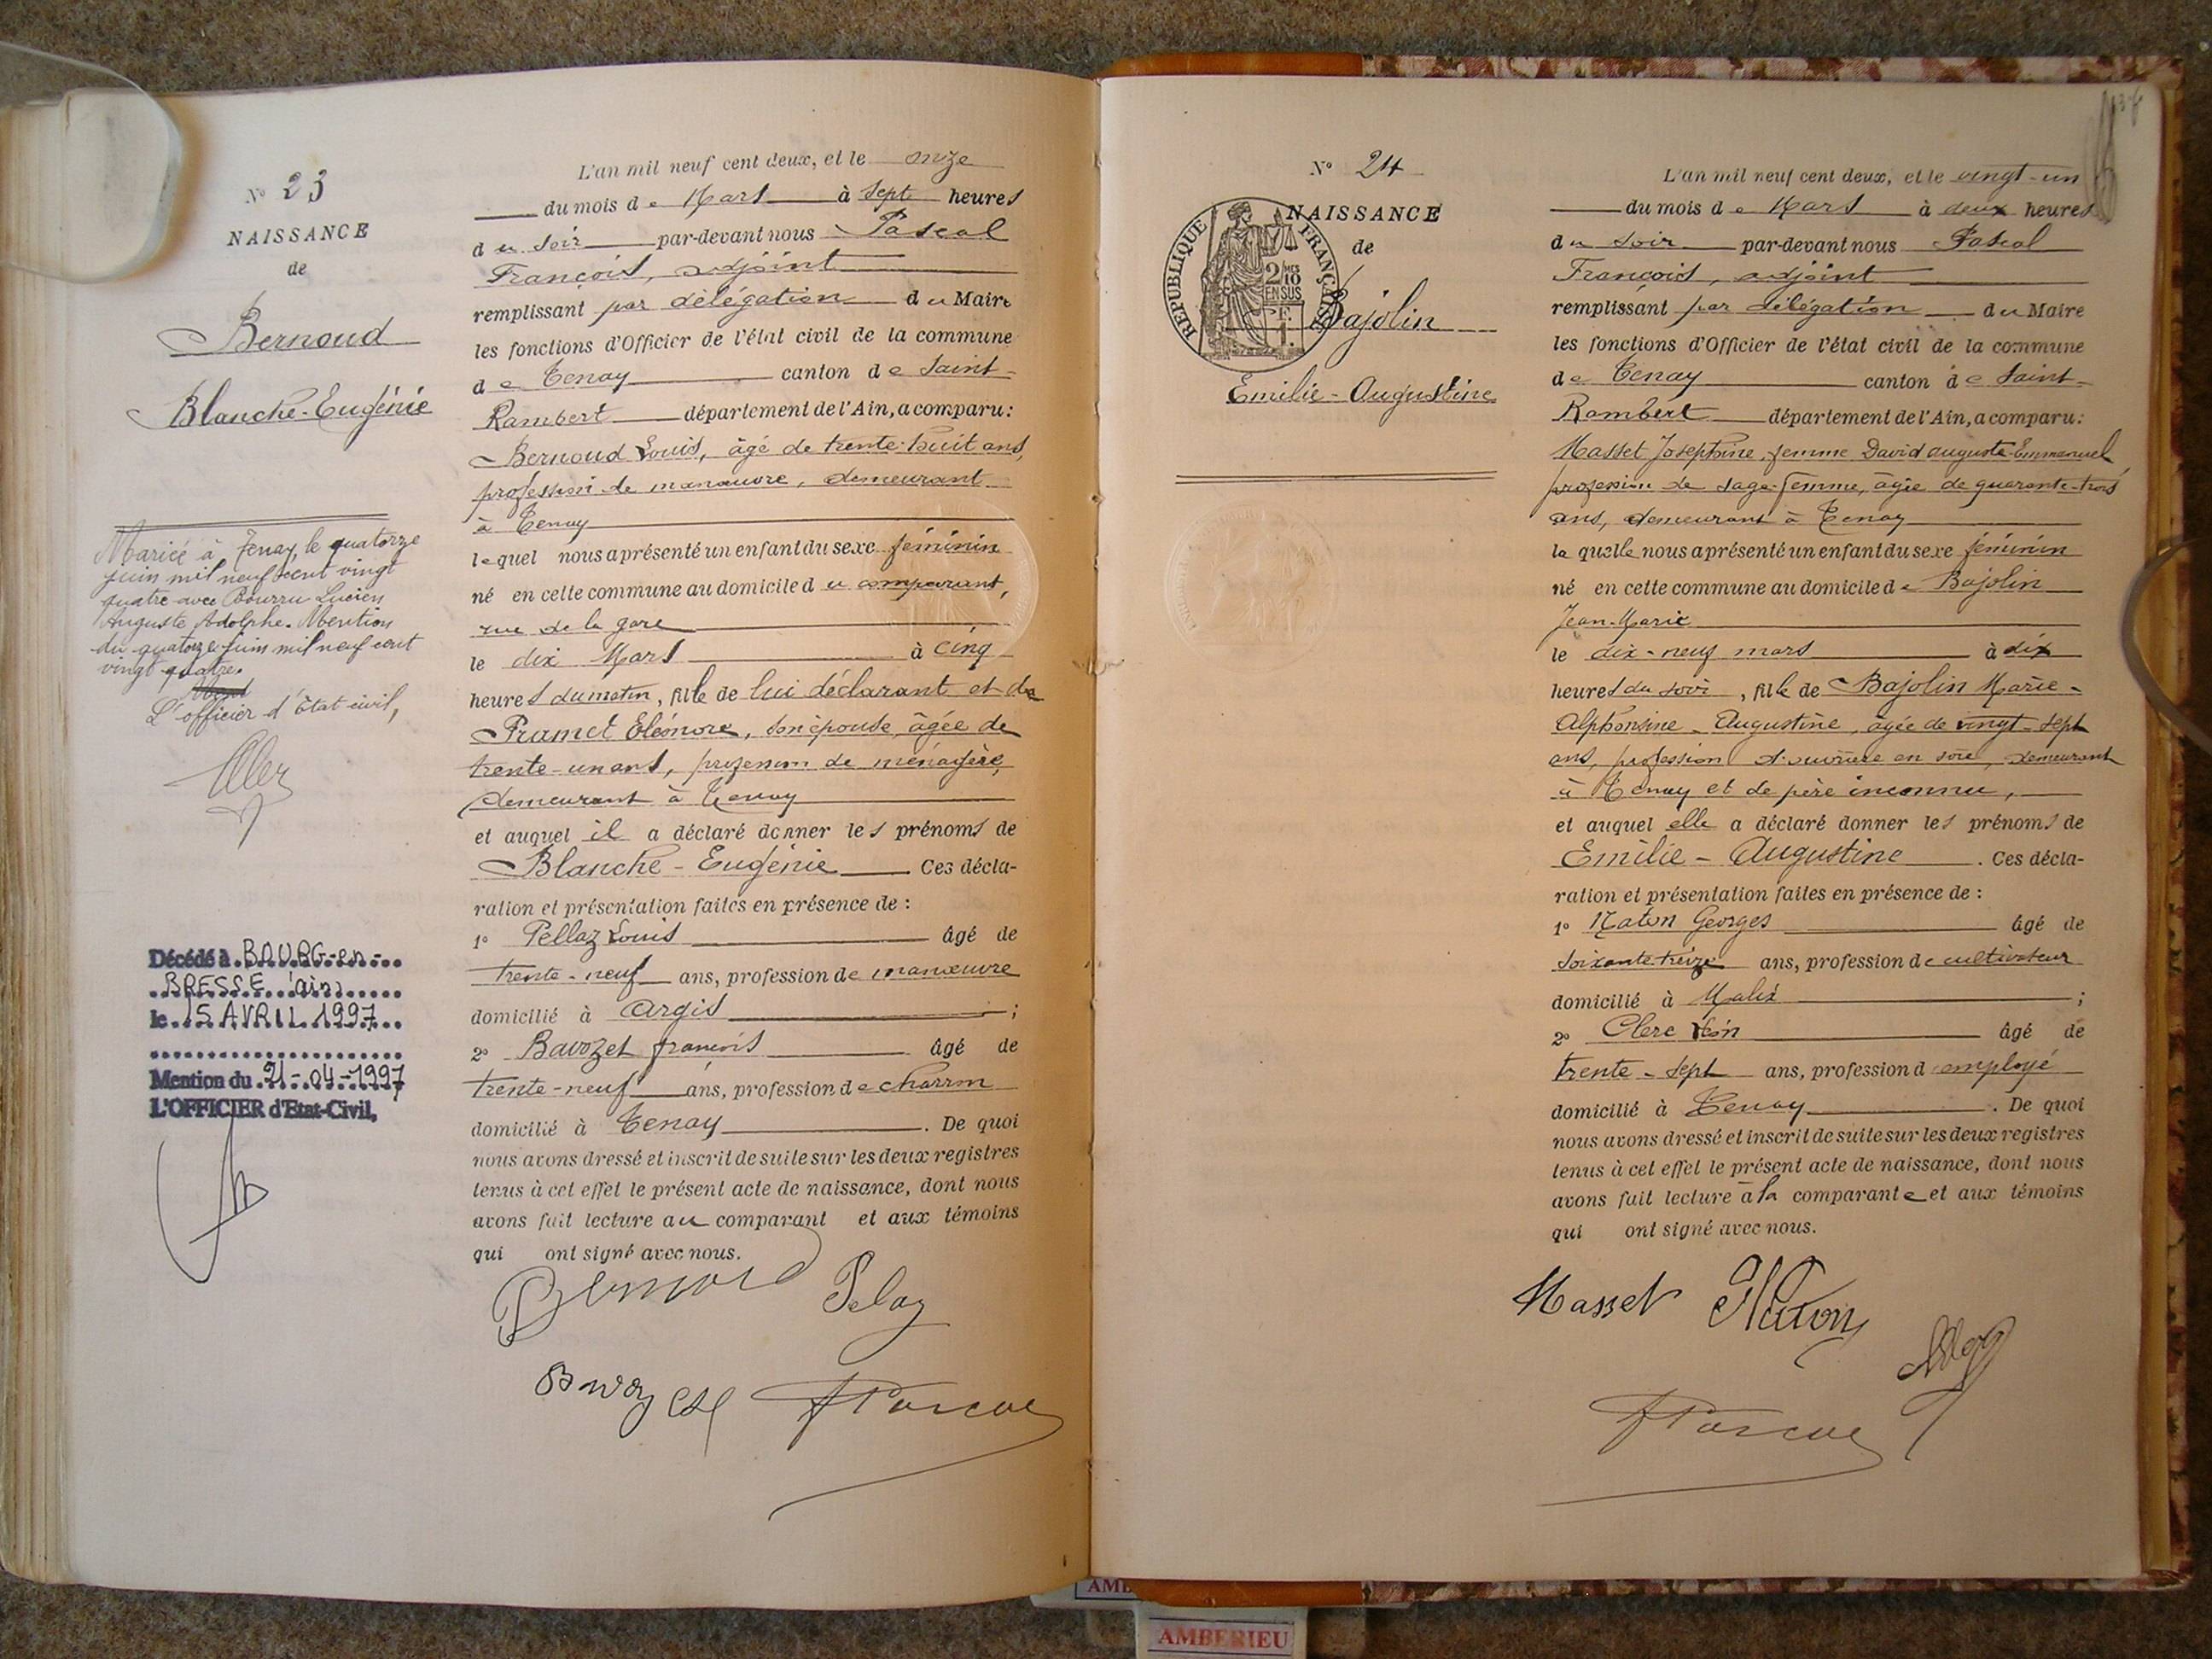 N° 23
NAISSANCE
de
Bernoud
Blanche-Eugénie
Mariée à Tenay, le quatorze
juin mil neuf cent vingt
quatre avec Bourru Lucien
Auguste Adolphe. Mention
du quatorze juin mil neuf cent
vingt quatre.
L'officier d'État civil,
Décédé à BOURG-en-
BRESSE (ain)
le 15 AVRIL 1997
Mention du 21-04-1997
L'OFFICIER d'Etat-Civil,
L'an mil neuf cent deux, et le onze
du mois de Mars à sept heures
du soir par-devant nous Pascal
François, adjoint
remplissant par délégation du Maire
les fonctions d'Officier de l'état civil de la commune
de Tenay canton de Saint-
Rambert département de l'Ain, a comparu:
Bernoud Louis, âgé de trente-huit ans,
profession de manœuvre, demeurant
à Tenay
lequel nous a présenté un enfant du sexe féminin
né en cette commune au domicile du comparant,
rue de la gare
le dix Mars à cinq
heures du matin, fille de lui déclarant et de
Pramet Eléonore, son épouse, âgée de
trente-un ans, profession de ménagère,
demeurant à Tenay
et auquel il a déclaré donner les prénoms de
Blanche-Eugénie Ces décla-
ration et présentation faites en présence de :
1° Pellaz Louis âgé de
trente-neuf ans, profession de manœuvre
domicilié à Argis ;
2° Bavozet françois âgé de
trente-neuf ans, profession de charron
domicilié à Tenay . De quoi
nous avons dressé et inscrit de suite sur les deux registres
tenus à cet effet le présent acte de naissance, dont nous
avons fait lecture au comparant et aux témoins
qui ont signé avec nous.
Bernoud Pelaz
Bavozet FPascal
N° 24
NAISSANCE
de
REPUBLIQUE FRANÇAISE
2 MES
10
EN SUS
1F.
Bajolin
Emilie-Augustine
L'an mil neuf cent deux, et le vingt-un
du mois de Mars à deux heures
du soir par-devant nous Pascal
François, adjoint
remplissant par délégation du Maire
les fonctions d'Officier de l'état civil de la commune
de Tenay canton de Saint-
Rambert département de l'Ain, a comparu:
Masset Joséphine, femme David Auguste-Emmanuel
profession de sage-femme, âgée de quarante-trois
ans, demeurant à Tenay
laquelle nous a présenté un enfant du sexe féminin
né en cette commune au domicile de Bajolin
Jean-Marie
le dix-neuf mars à dix
heures du soir, fille de Bajolin Marie-
Alphonsine-Augustine, âgée de vingt-sept
ans, profession d'ouvrière en soie, demeurant
à Tenay et de père inconnu,
et auquel elle a déclaré donner les prénoms de
Emilie-Augustine . Ces décla-
ration et présentation faites en présence de :
1° Naton Georges âgé de
soixante-treize ans, profession de cultivateur
domicilié à Malix ;
2° Clerc Léon âgé de
trente-sept ans, profession d'employé
domicilié à Tenay . De quoi
nous avons dressé et inscrit de suite sur les deux registres
tenus à cet effet le présent acte de naissance, dont nous
avons fait lecture à la comparante et aux témoins
qui ont signé avec nous.
Masset Naton
FPascal
AMBERIEU